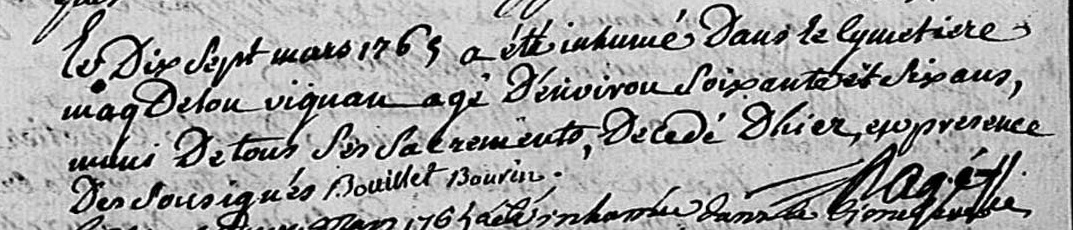 Le Dix Sept mars 1765 a été inhumé Dans le Cymetiere
magDelon vignau agé D'environ Soixante et Six ans,
muni De tous Ses Sacrements, Decedé Dhier, en presence
Des Sousignés Bouillet Bourin.
mars 1765 a été inhumée dans le